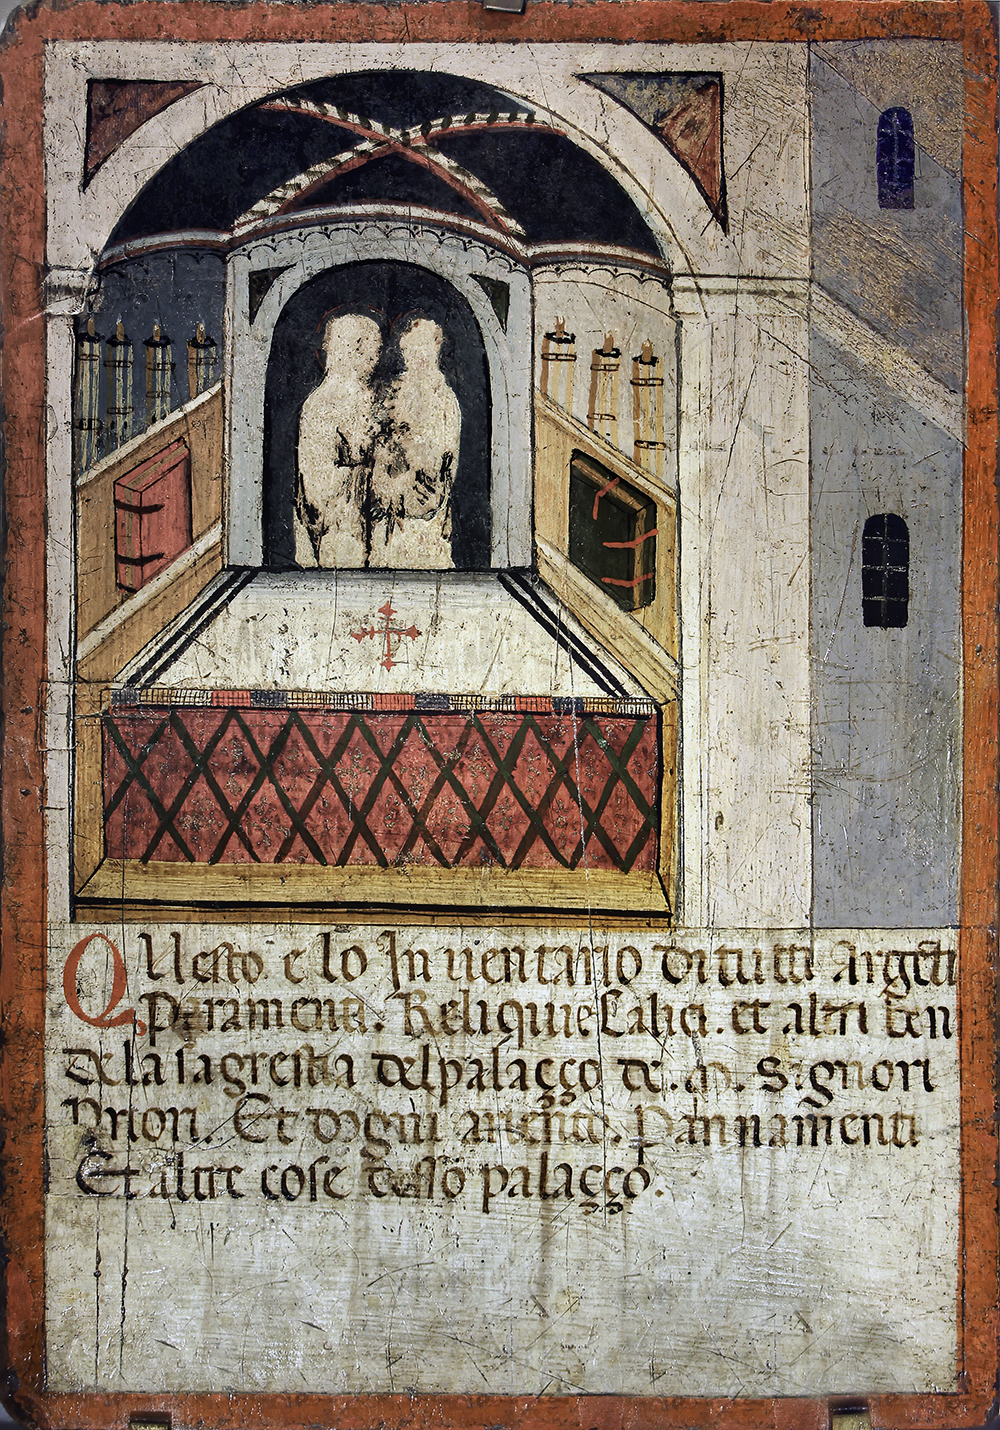 Questo e lo Inuentario di tutti Argẽti
Paramenti. Reliquie Calici. et altri ben
de la sagrestia del palaçço de. M. Signori
Priori. Et dogni arienti. Pannamenti
Et altre cose desso palaçço.